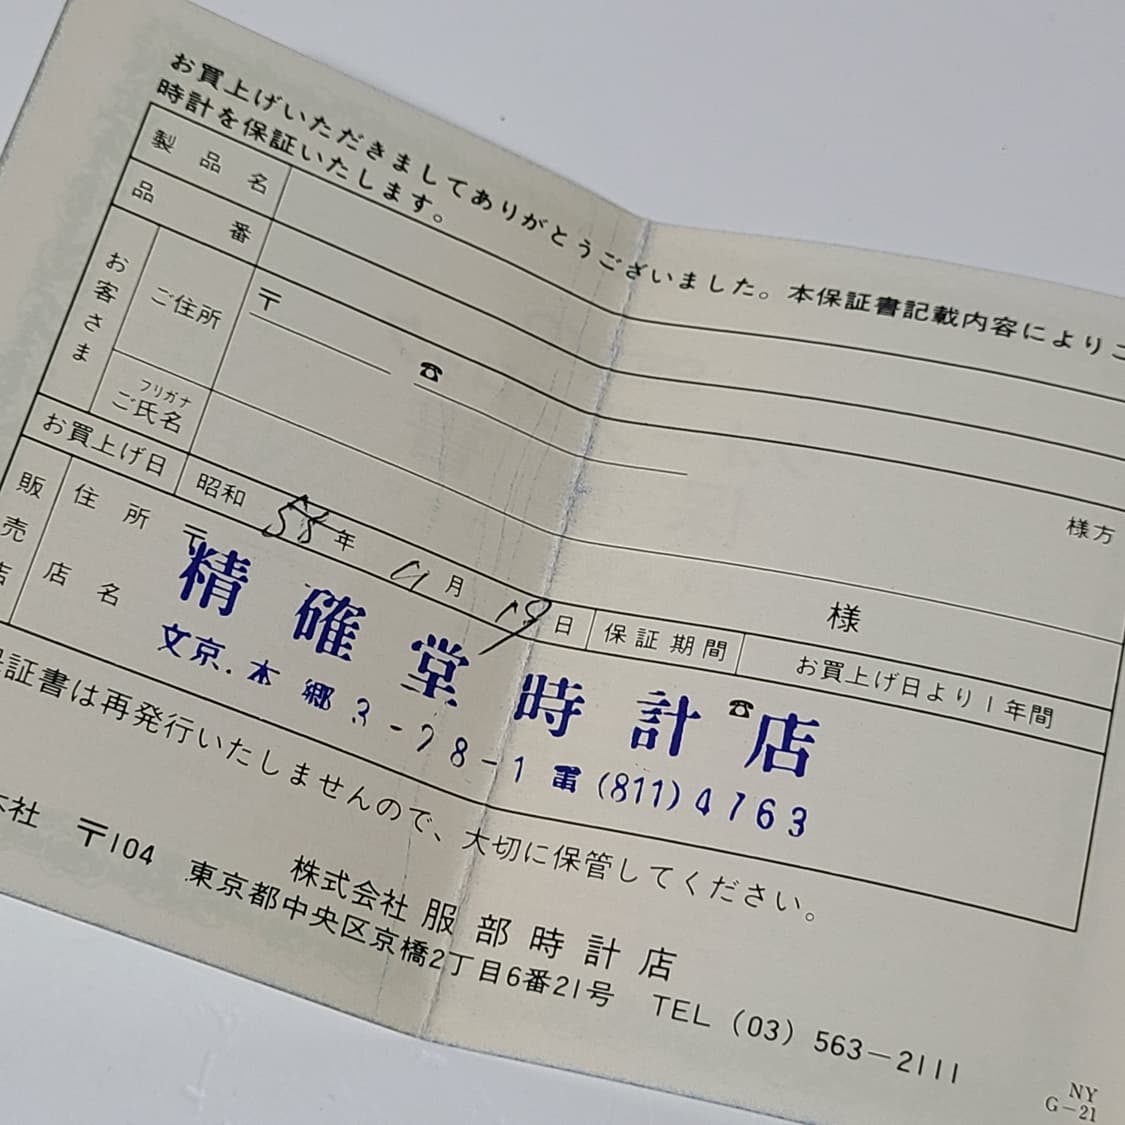 お買上げいただきましてありがとうございました。本保証書記載内容によりご
時計を保証いたします。
製品名
品番
お客さま
ご住所 〒
☎
様方
フリガナ
ご氏名
様
お買上げ日 昭和 58年 9月 19日 保証期間 お買上げ日より1年間
販売店
住所 〒
店名
☎
精確堂時計店
文京.本郷3-28-1 電(811)4763
保証書は再発行いたしませんので、大切に保管してください。
株式会社 服部時計店
本社 〒104 東京都中央区京橋2丁目6番21号 TEL (03) 563-2111
NY
G-21